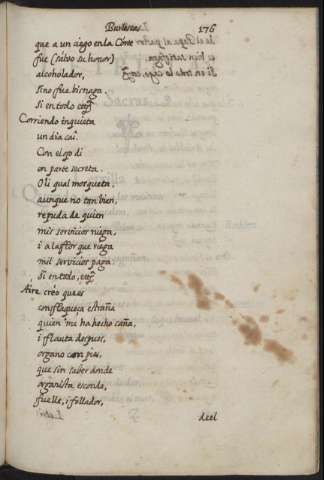 Burlescas. 176
que a un ciego en la Corte
fue (salvo su honor)
alcoholador,
sino fue biznaga.
Si en todo &c.
Corriendo inquieta
un dia cai
Con el ojo di
en parte secreta.
Oli qual mosqueta,
aunque no tan bien,
repuda de quien
mis servicios niega,
i a la flor que riega
mil servicios paga.
Si en todo, &c.
Aire creo que es
con flaqueça estraña
quien me ha hecho caña,
i flauta despues,
organo con pies,
que sin saber donde
organista esconde,
fuelle, i follador,
del